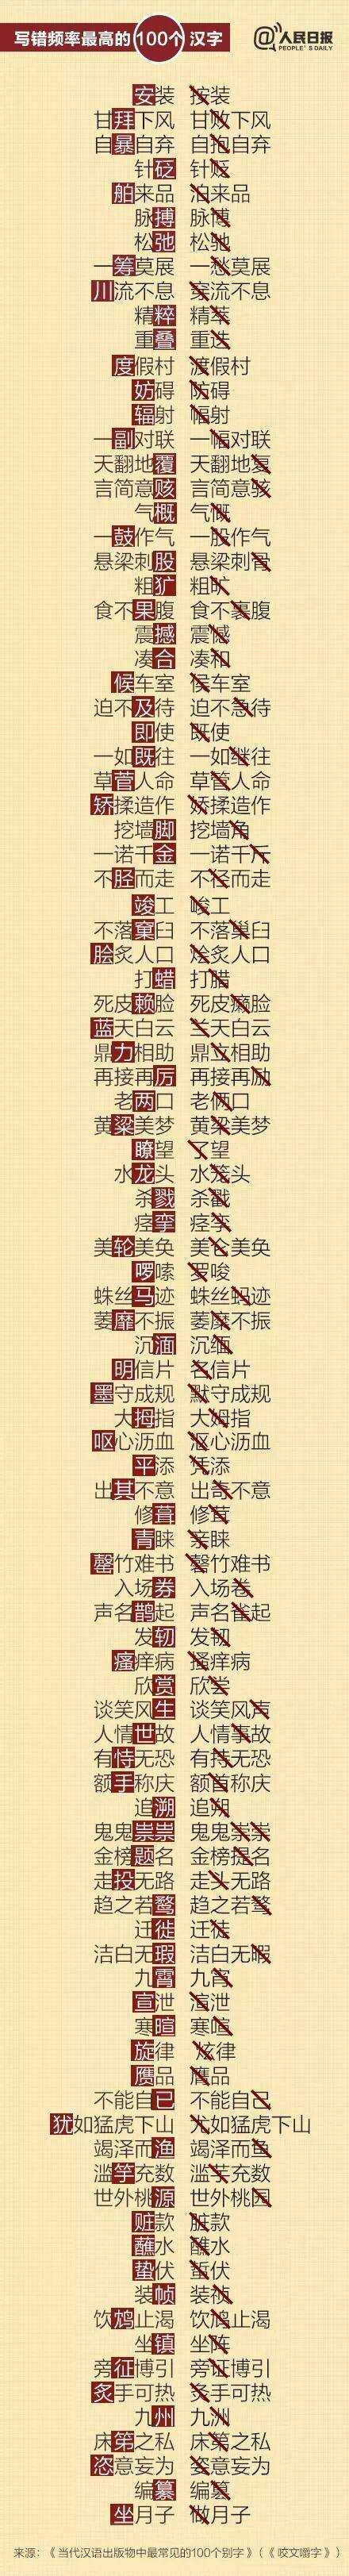 写错频率最高的100个 汉字
@人民日报
PEOPLE'S DAILY
安装 按装
甘拜下风 甘败下风
自暴自弃 自抱自弃
针砭 针贬
舶来品 泊来品
脉搏 脉博
松弛 松驰
一筹莫展 一愁莫展
川流不息 穿流不息
精粹 精萃
重叠 重迭
度假村 渡假村
妨碍 防碍
辐射 幅射
一副对联 一幅对联
天翻地覆 天翻地复
言简意赅 言简意骇
气概 气慨
一鼓作气 一股作气
悬梁刺股 悬梁刺骨
粗犷 粗旷
食不果腹 食不裹腹
震撼 震憾
凑合 凑和
候车室 侯车室
迫不及待 迫不急待
即使 既使
一如既往 一如继往
草菅人命 草管人命
矫揉造作 娇揉造作
挖墙脚 挖墙角
一诺千金 一诺千斤
不胫而走 不径而走
竣工 峻工
不落窠臼 不落巢臼
脍炙人口 烩炙人口
打蜡 打腊
死皮赖脸 死皮癞脸
蓝天白云 兰天白云
鼎力相助 鼎立相助
再接再厉 再接再励
老两口 老俩口
黄粱美梦 黄梁美梦
瞭望 了望
水龙头 水笼头
杀戮 杀戳
痉挛 痉李
美轮美奂 美仑美奂
啰嗦 罗唆
蛛丝马迹 蛛丝蚂迹
萎靡不振 萎糜不振
沉湎 沉缅
明信片 名信片
墨守成规 默守成规
大拇指 大姆指
呕心沥血 沤心沥血
平添 凭添
出其不意 出奇不意
修葺 修茸
青睐 亲睐
罄竹难书 磬竹难书
入场券 入场卷
声名鹊起 声名雀起
发轫 发韧
瘙痒病 搔痒病
欣赏 欣尝
谈笑风生 谈笑风声
人情世故 人情事故
有恃无恐 有持无恐
额手称庆 额首称庆
追溯 追朔
鬼鬼祟祟 鬼鬼崇崇
金榜题名 金榜提名
走投无路 走头无路
趋之若鹜 趋之若骛
迁徙 迁徒
洁白无瑕 洁白无暇
九霄 九宵
宣泄 渲泄
寒暄 寒喧
旋律 炫律
赝品 膺品
不能自已 不能自己
犹如猛虎下山 尤如猛虎下山
竭泽而渔 竭泽而鱼
滥竽充数 滥芋充数
世外桃源 世外桃园
赃款 脏款
蘸水 醮水
蛰伏 蜇伏
装帧 装祯
饮鸩止渴 饮鸠止渴
坐镇 坐阵
旁征博引 旁证博引
炙手可热 灸手可热
九州 九洲
床笫之私 床第之私
恣意妄为 姿意妄为
编纂 编篡
坐月子 做月子
来源：《当代汉语出版物中最常见的100个别字》（《咬文嚼字》）